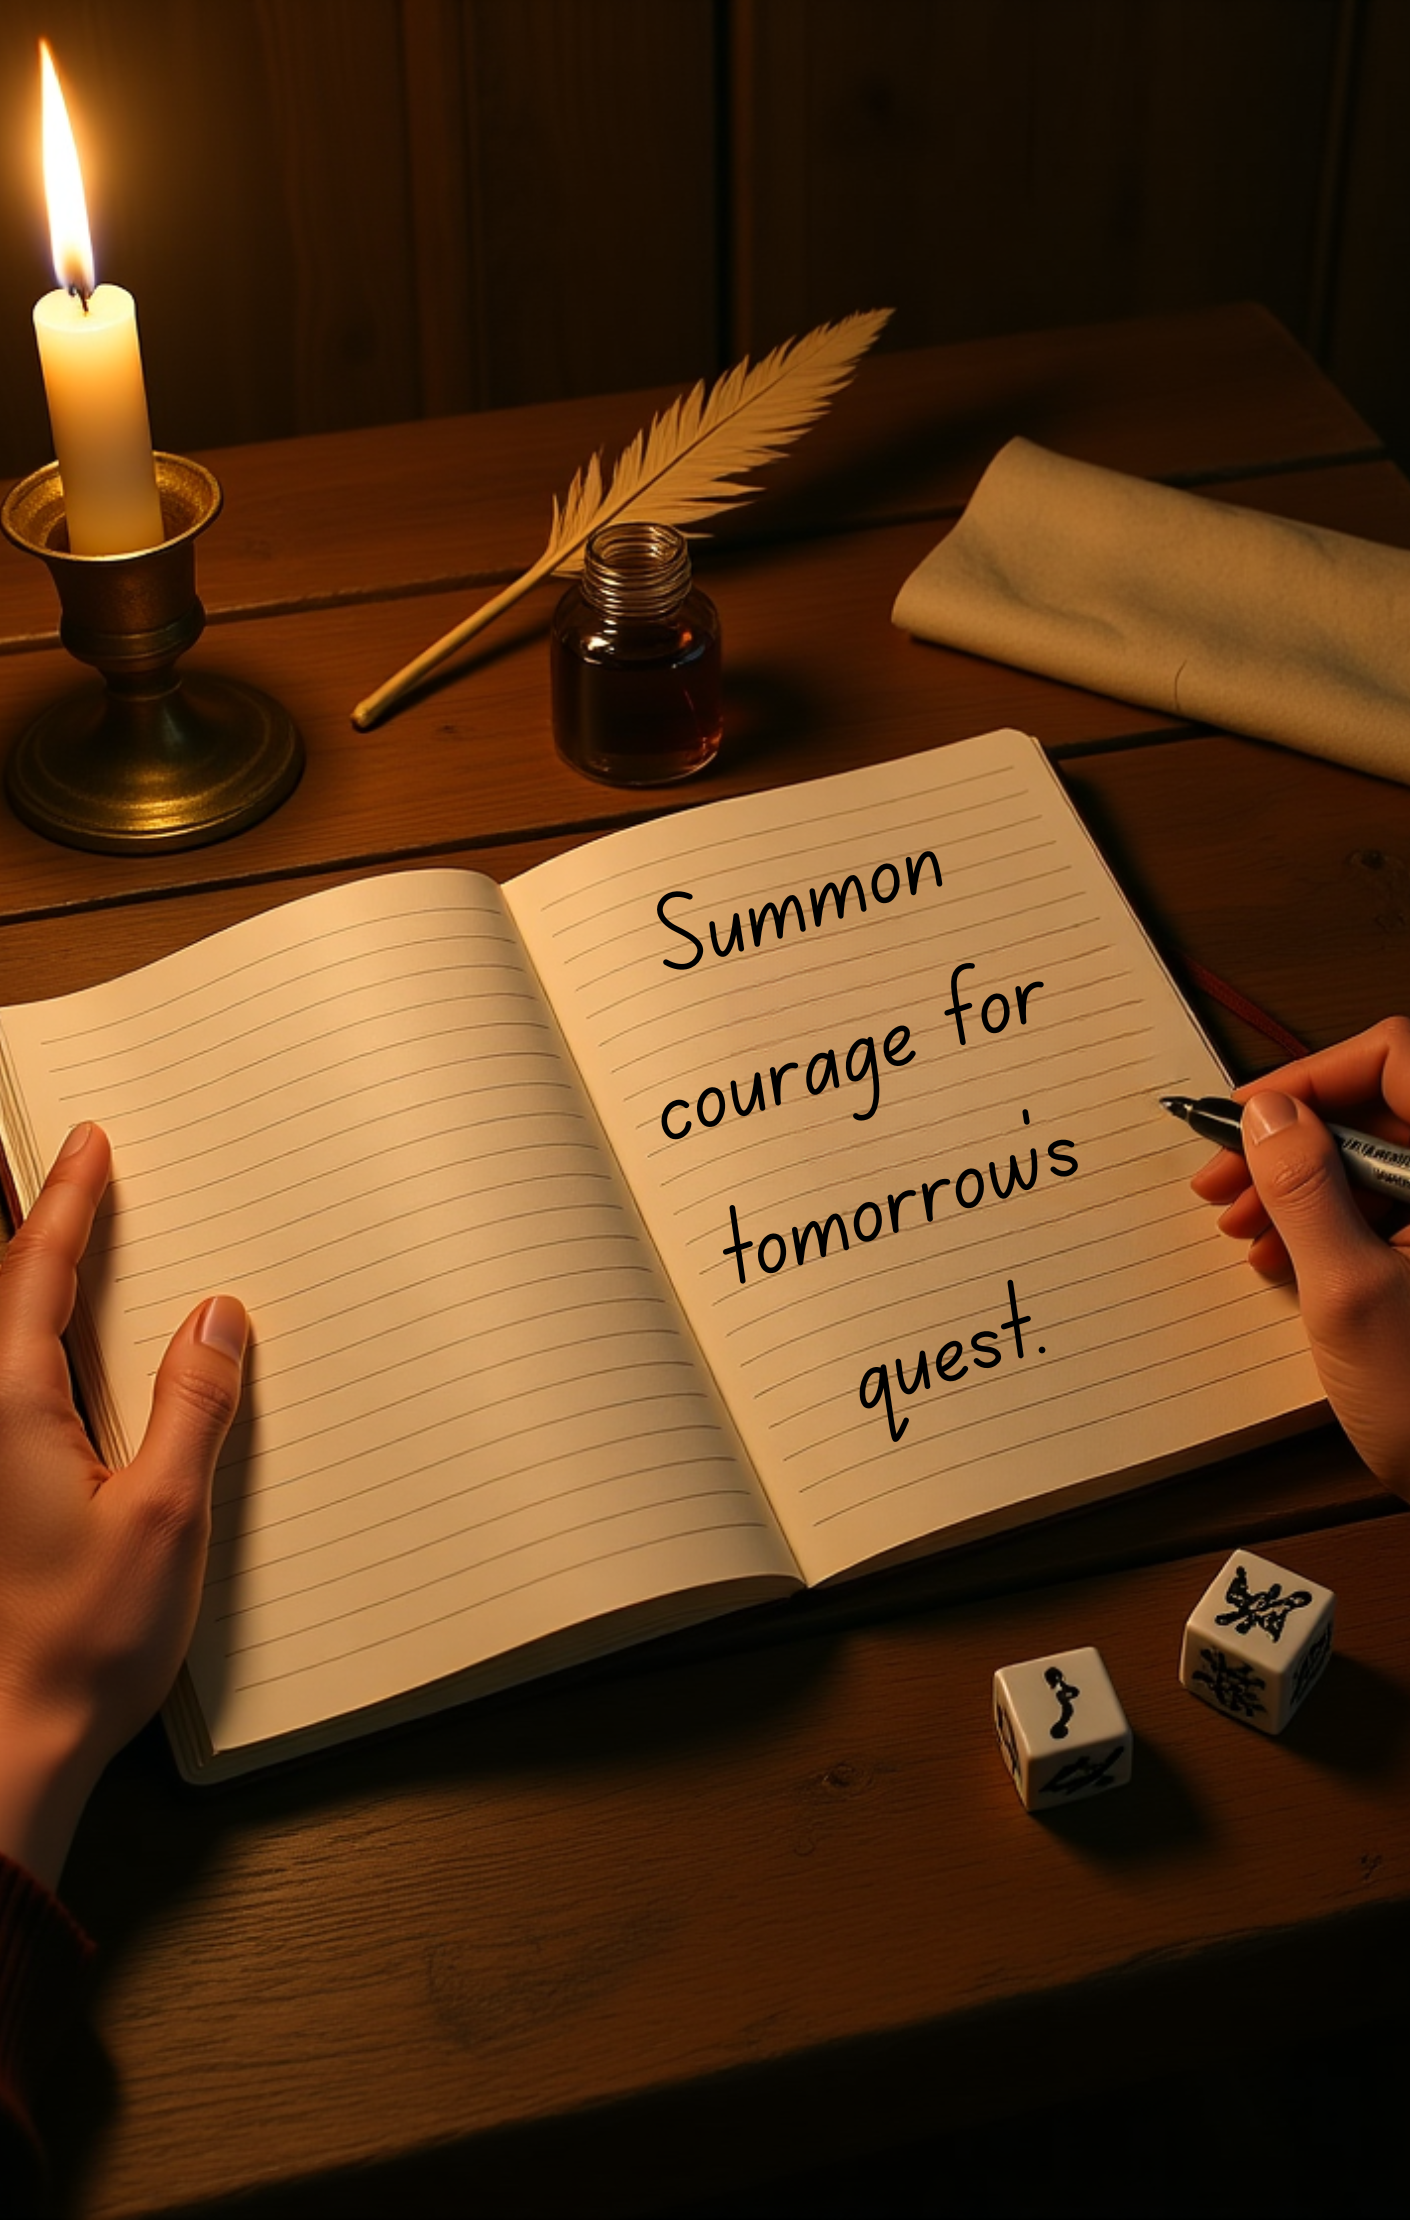 Summon
courage for
tomorrow's
quest.